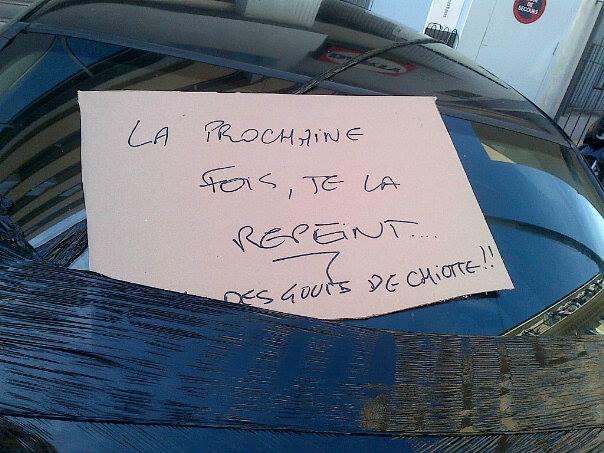 LA PROCHAINE
FOIS, JE LA
REPEINT....
DES GOUTS DE CHIOTTE!!
DE
SECOURS